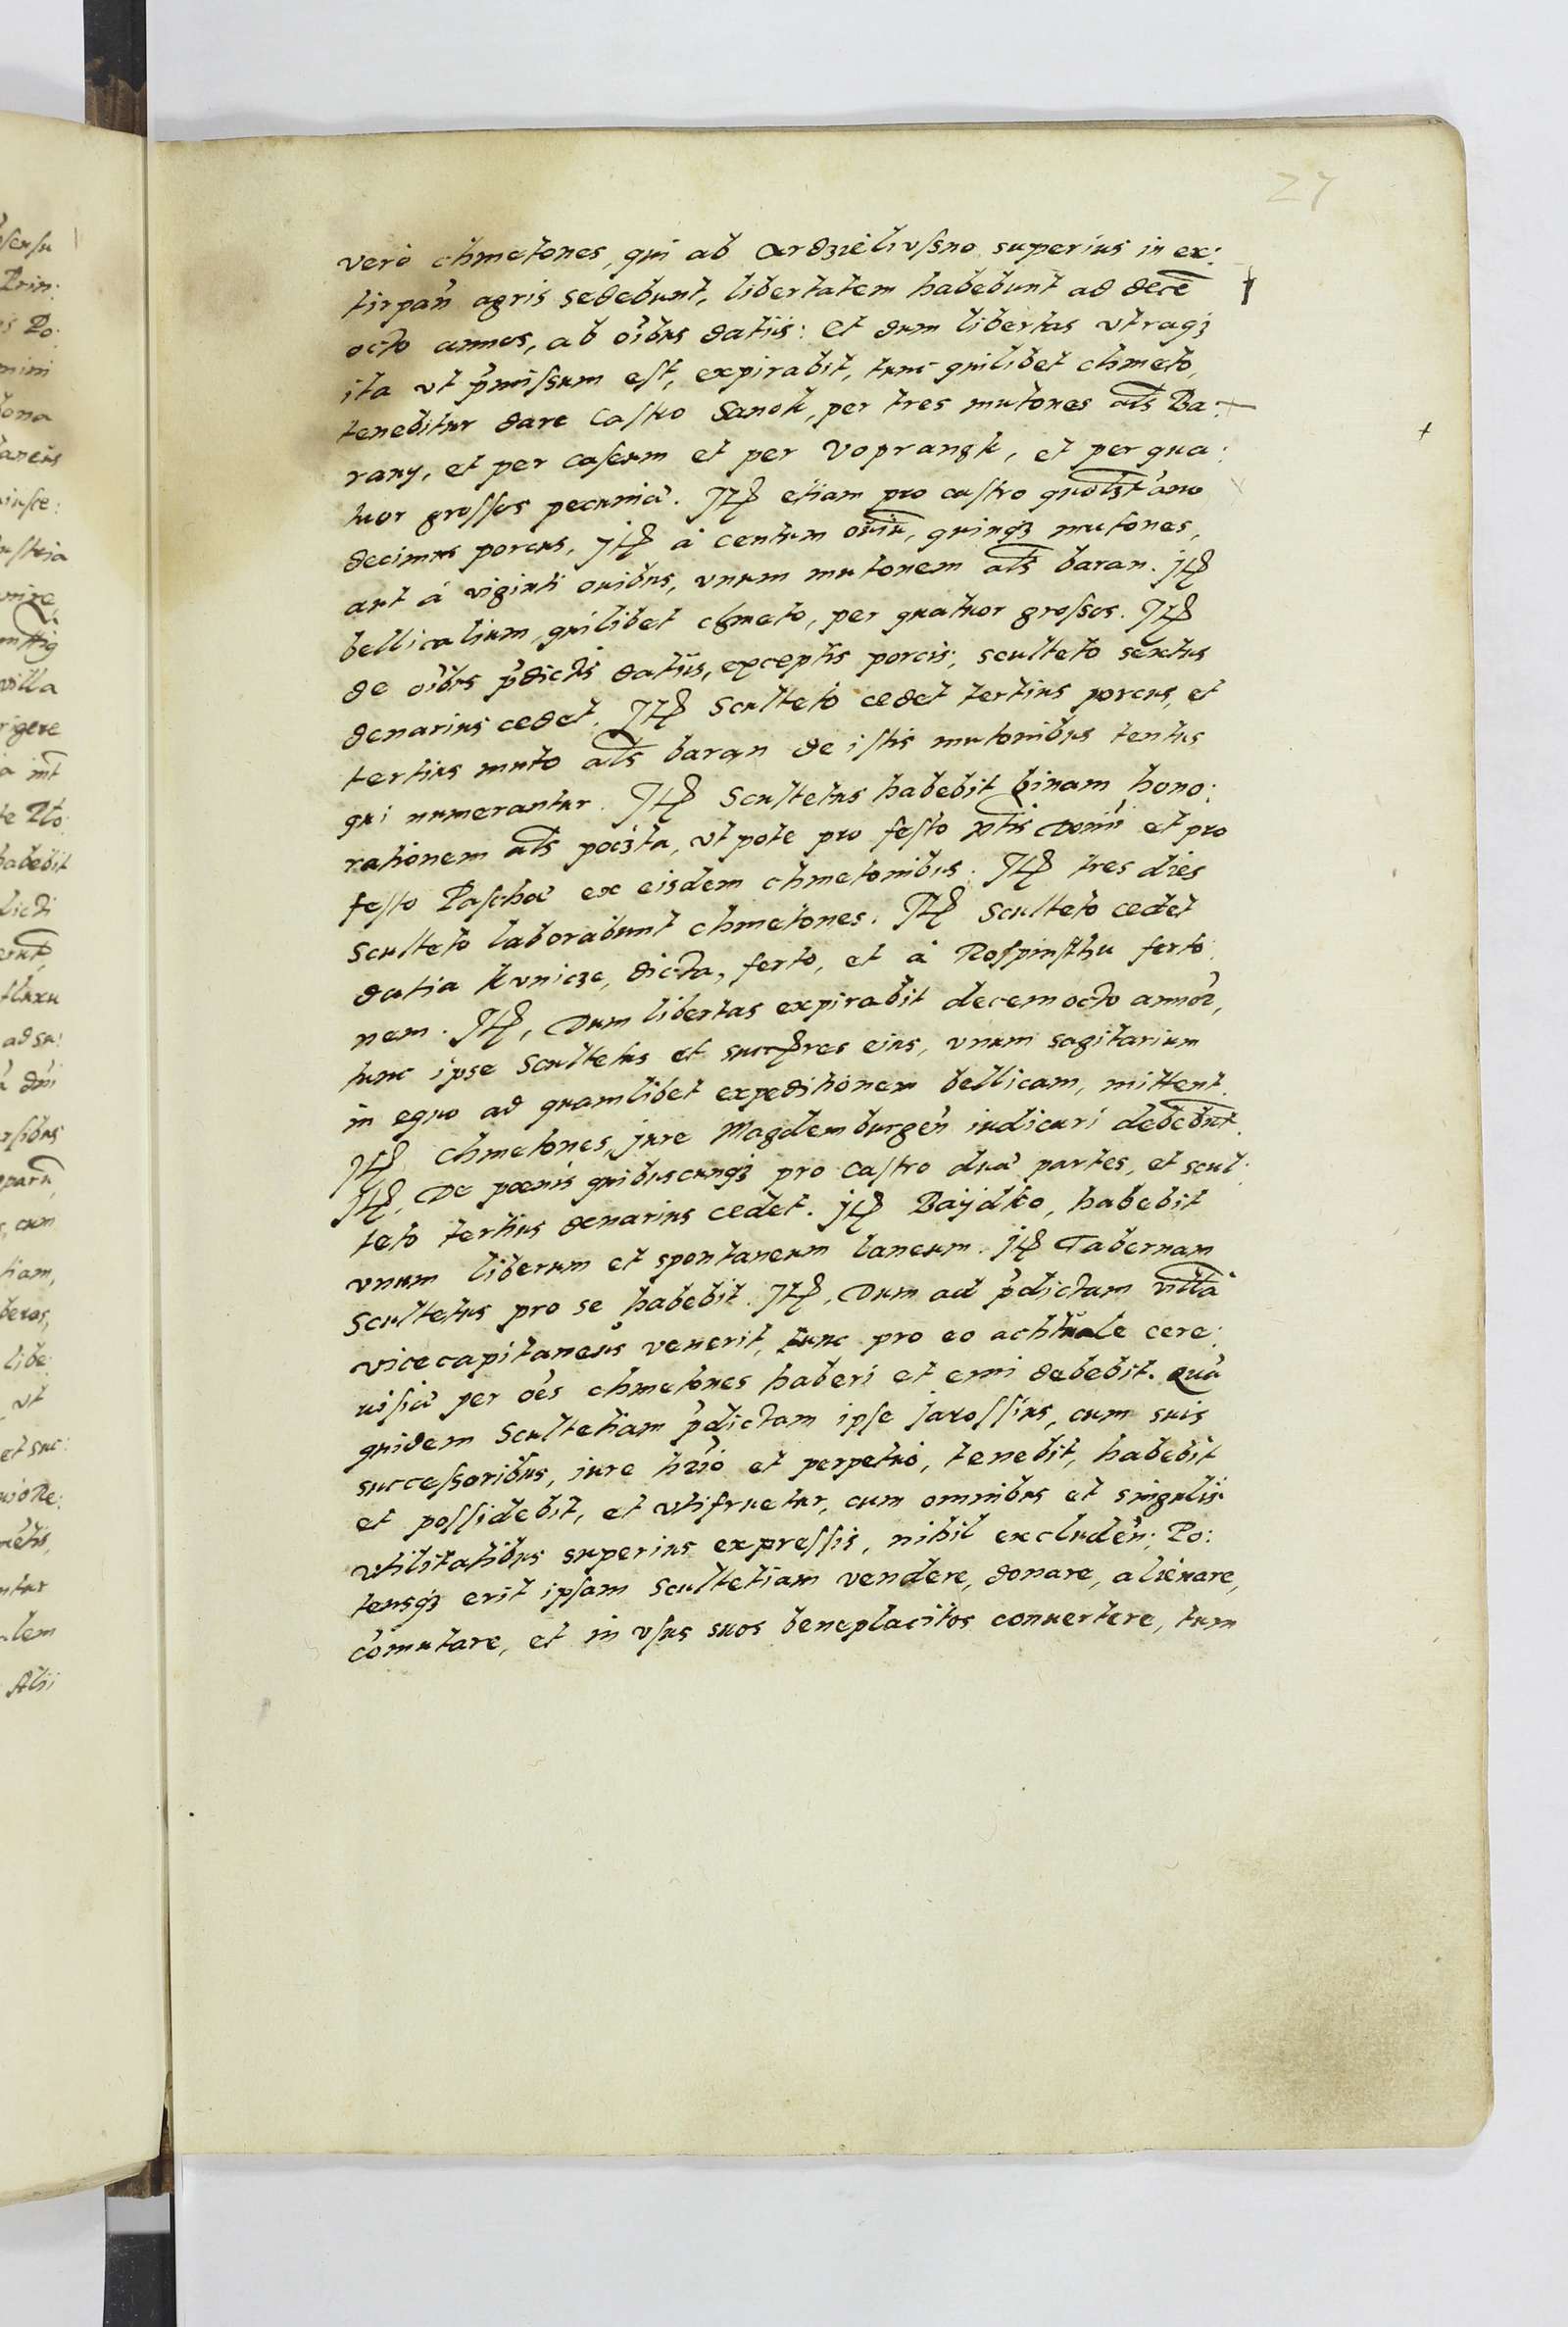 27
vero chmetones, qui ab Ardzieliusno superius in ex:
tirpań agris sedebunt, libertatem habebunt ad decē
octo annos, ab oībus datiis: et dum libertas vtraqȝ
ita vt p̄missum est, expirabit, tunc quilibet chmeto,
tenebitur dare Castro Sanok, per tres mutones als Ba:
rany, et per caseum et per Voprangk, et per qua:
tuor grossos pecuniæ. Itē etiam pro castro quolȝt anno
decimus porcus, Itē à centum ouiū, quinqȝ mutones,
aut à viginti ouibus, vnum mutonem als baran. Itē
bellicalium, quilibet chmeto, per quatuor grossos. Itē
de oībus p̄dictis datiis, exceptis porcis, sculteto sextus
denarius cedet. Itē Sculteto cedet tertius porcus, et
tertius muto als baran de istis mutonibus tentus
qui numerantur. Itē Scultetus habebit binam hono:
rationem als poczta, vt pote pro festo Nātis Domī et pro
festo Paschæ ex eisdem chmetonibus. Itē tres dies
Sculteto laborabunt chmetones. Itē Sculteto cedet
datia kunicze, dicta, ferto, et à Rospinsthu ferto:
nem. Itē, Dum libertas expirabit decem octo annoꝝ,
tunc ipse Scultetus et succēres eius, vnum sagitarium
in equo ad quamlibet expeditionem bellicam, mittent.
Itē Chmetones, jure Magdemburgeń iudicari debebūt.
Itē, De pœnis quibuscunqȝ pro Castro duæ partes, et scul:
teto tertius denarius cedet. Itē Baijdko, habebit
vnum liberum et spontaneum laneum. Itē Tabernam
Scultetus pro se habebit. Itē, Dum ad p̄dictam villā
vicecapitaneus venerit, tunc pro eo achtuale cere:
uisiæ per oēs chmetones haberi et emi debebit. Quā
quidem Scultetiam p̄dictam ipse Jarossius, cum suis
successoribus, iure hꝛio et perpetuò, tenebit, habebit
et possidebit, et vtifruetur, cum omnibus et singulis
vtilitatibus superius expressis, nihil excludeń. Po:
tensqȝ erit ipsam Scultetiam vendere, donare, alienare,
cōmutare, et in vsus suos beneplacitos conuertere, tum